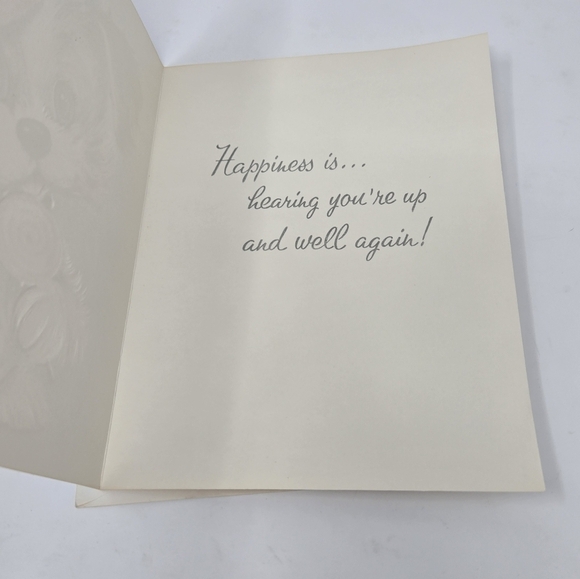 Happiness is...
hearing you're up
and well again!